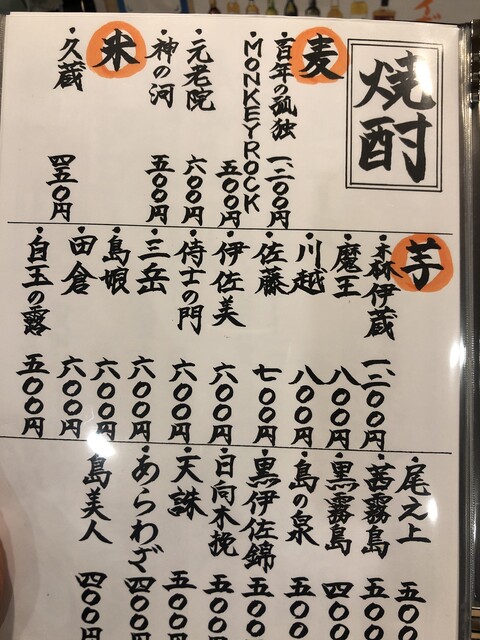 焼酎
麦
・百年の孤独 一、二〇〇円
・MONKEY ROCK 五〇〇円
・元老院 六〇〇円
・神の河 五〇〇円
米
・久蔵 四五〇円
芋
・森伊蔵 一、二〇〇円
・魔王 八〇〇円
・川越 八〇〇円
・佐藤 七〇〇円
・伊佐美 六〇〇円
・侍士の門 六〇〇円
・三岳 六〇〇円
・島娘 六〇〇円
・田倉 六〇〇円
・白玉の露 五〇〇円
・尾之上 五〇〇
・茜霧島 五〇〇
・黒霧島 四〇〇
・島の泉 五〇〇
・黒伊佐錦 五〇〇
・日向木挽 五〇〇
・天誅 五〇〇
・あらわざ 四〇〇円
・島美人 四〇〇円